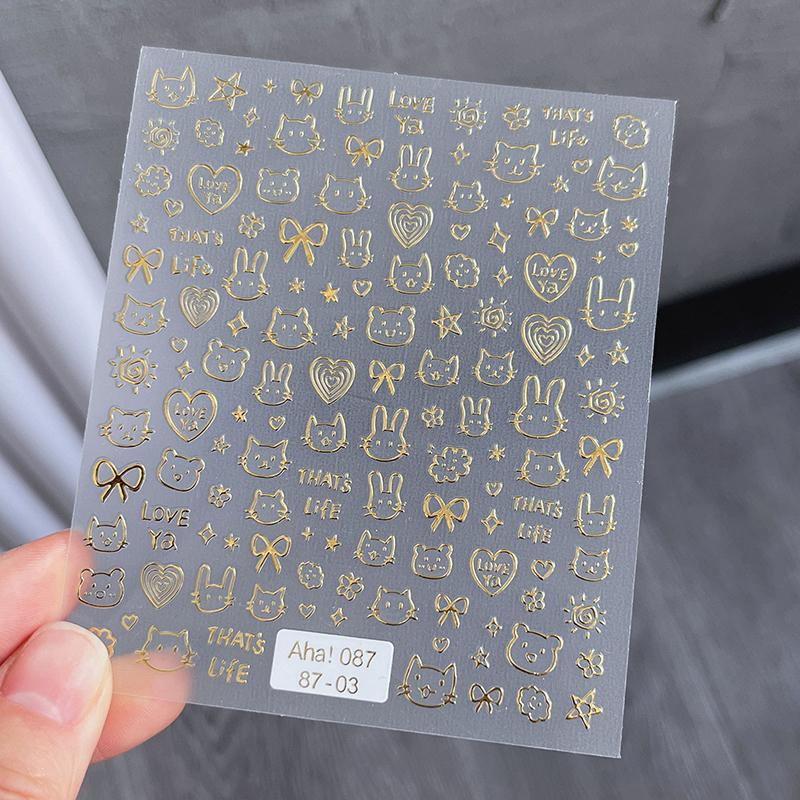 LOVE
Ya
THAT'S
LiFe
LOVE
Ya
THAT'S
LiFe
LOVE
Ya
LOVE
Ya
THAT'S
LiFe
THAT'S
LiFe
LOVE
Ya
LOVE
Ya
THAT'S
LiFe
Aha! 087
87-03